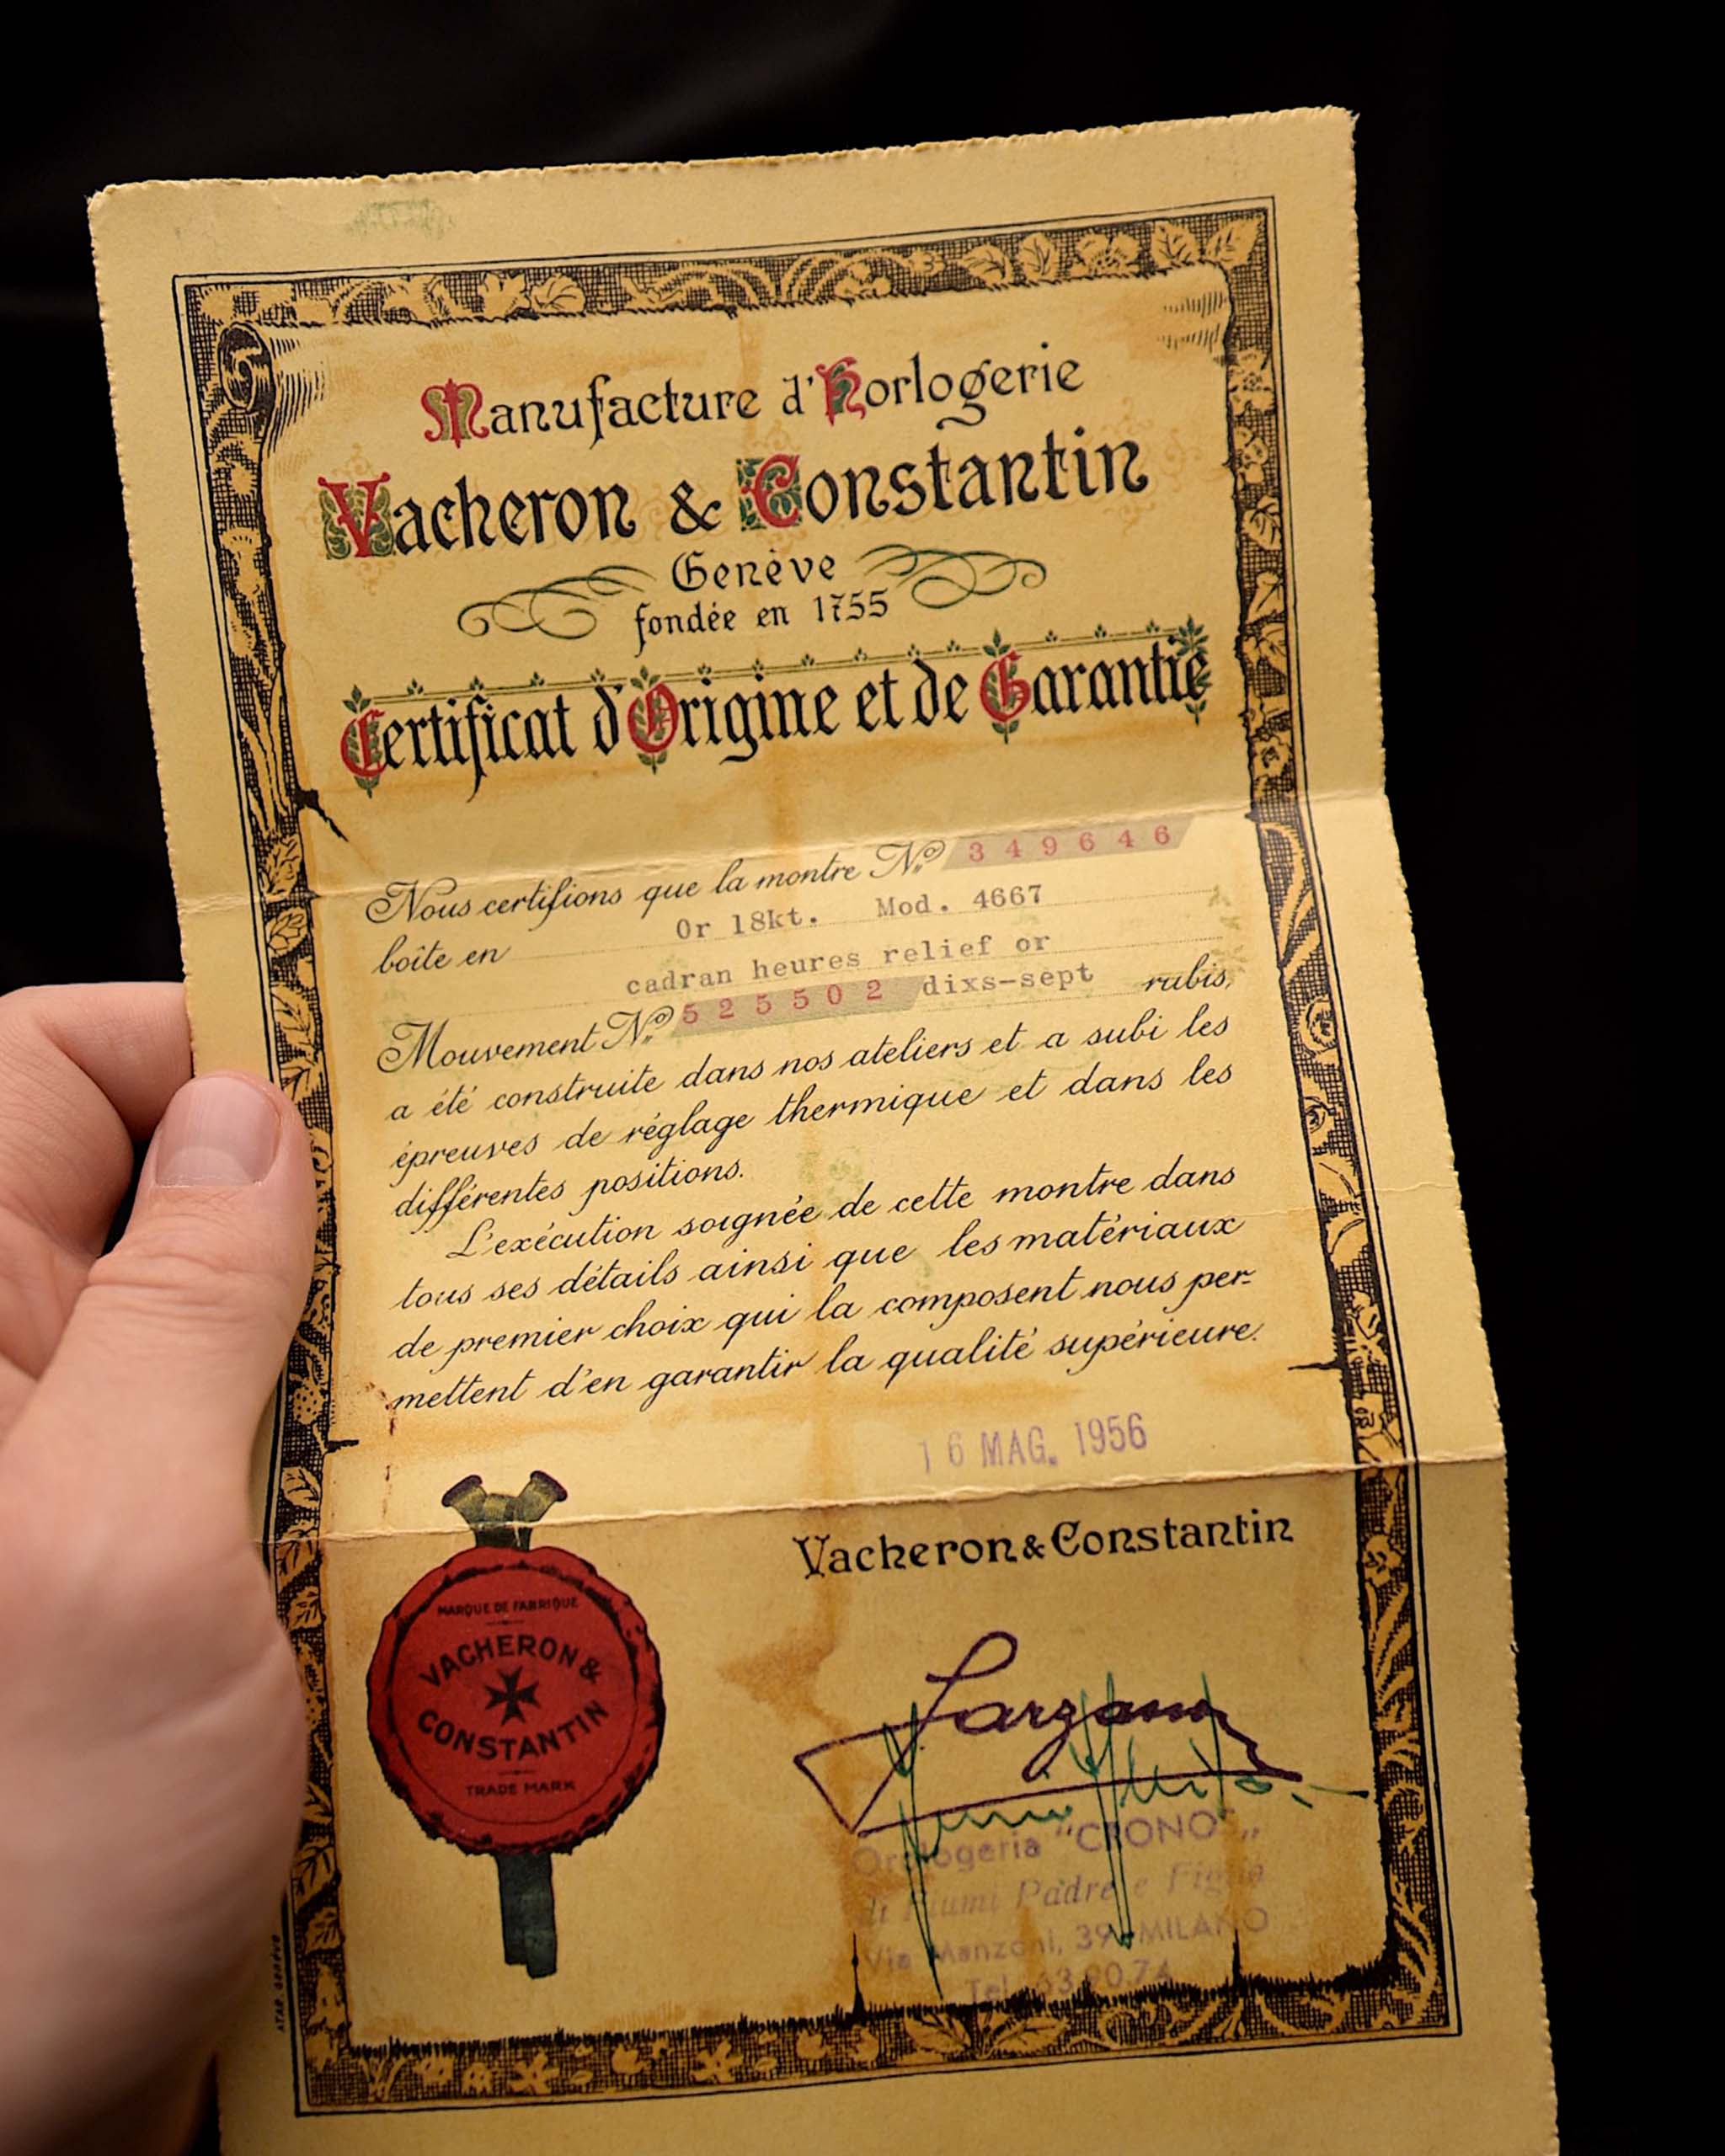 Manufacture d'Horlogerie
Vacheron & Constantin
Genève
fondée en 1755
Certificat d'Origine et de Garantie
Nous certifions que la montre No 349646
boîte en Or 18kt. Mod. 4667
cadran heures relief or
Mouvement No 525502 dixs-sept rubis,
a été construite dans nos ateliers et a subi les
épreuves de réglage thermique et dans les
différentes positions.
L'exécution soignée de cette montre dans
tous ses détails ainsi que les matériaux
de premier choix qui la composent nous per-
mettent d'en garantir la qualité supérieure.
16 MAG. 1956
Vacheron & Constantin
MARQUE DE FABRIQUE
VACHERON &
CONSTANTIN
TRADE MARK
Orologeria "CRONO"
di Padre e
Via Manzoni, 39 - MILANO
Tel.
ATAR GENÈVE